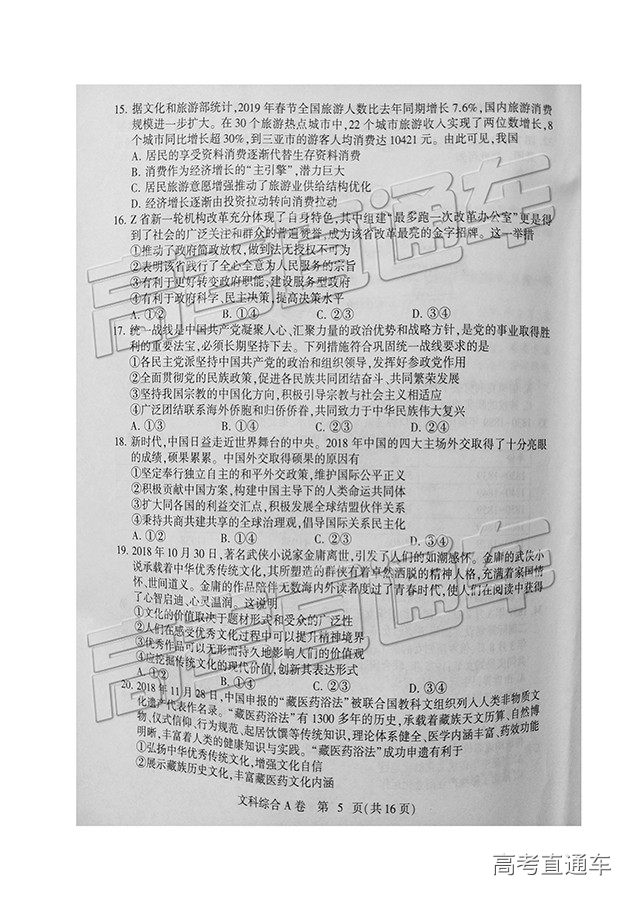 15. 据文化和旅游部统计,2019年春节全国旅游人数比去年同期增长7.6%,国内旅游消费
规模进一步扩大。在30个旅游热点城市中,22个城市旅游收入实现了两位数增长,8
个城市同比增长超30%,到三亚市的游客人均消费达10421元。由此可见,我国
A. 居民的享受资料消费逐渐代替生存资料消费
B. 消费作为经济增长的“主引擎”,潜力巨大
C. 居民旅游意愿增强推动了旅游业供给结构优化
D. 经济增长逐渐由投资拉动转向消费拉动
16. Z省新一轮机构改革充分体现了自身特色,其中组建“最多跑一次改革办公室”更是得
到了社会的广泛关注和群众的普遍赞誉,成为该省改革最亮的金字招牌。这一举措
①推动了政府简政放权,做到法无授权不可为
②表明该省践行了全心全意为人民服务的宗旨
③有利于更好转变政府职能,建设服务型政府
④有利于政府科学、民主决策,提高决策水平
A. ①② B. ①④ C. ②③ D. ③④
17. 统一战线是中国共产党凝聚人心、汇聚力量的政治优势和战略方针,是党的事业取得胜
利的重要法宝,必须长期坚持下去。下列措施符合巩固统一战线要求的是
①各民主党派坚持中国共产党的政治和组织领导,发挥好参政党作用
②全面贯彻党的民族政策,促进各民族共同团结奋斗、共同繁荣发展
③坚持我国宗教中国化方向,积极引导宗教与社会主义相适应
④广泛团结联系海外侨胞和归侨侨眷,共同致力于中华民族伟大复兴
A. ①③ B. ①④ C. ②③ D. ②④
18. 新时代,中国日益走近世界舞台的中央。2018年中国的四大主场外交取得了十分亮眼
的成绩,硕果累累。中国外交取得硕果的原因有
①坚定奉行独立自主的和平外交政策,维护国际公平正义
②积极贡献中国方案,构建中国主导下的人类命运共同体
③扩大同各国的利益交汇点,积极发展全球结盟伙伴关系
④秉持共商共建共享的全球治理观,倡导国际关系民主化
A. ①③ B. ①④ C. ②③ D. ③④
19. 2018年10月30日,著名武侠小说家金庸离世,引发了人们的如潮感怀。金庸的武侠小
说承载着中华优秀传统文化,其所塑造的群侠有着卓然洒脱的精神人格,充满着家国情
怀、世间道义。金庸的作品陪伴无数海内外读者度过了青春时代,使人们在阅读中获得
了心智启迪、心灵温润。这说明
①文化的价值取决于题材形式和受众的广泛性
②人们在感受优秀文化过程中可以提升精神境界
③优秀作品可以无形而持久地影响人们的价值观
④应挖掘传统文化的现代价值,创新其表达形式
A. ①② B. ①④ C. ②③ D. ③④
20. 2018年11月28日,中国申报的“藏医药浴法”被联合国教科文组织列入人类非物质文
化遗产代表作名录。“藏医药浴法”有1300多年的历史,承载着藏族天文历算、自然博
物、仪式信仰、行为规范、起居饮馔等传统知识,理论体系健全、医学内涵丰富、药效功能
明晰,丰富着人类的健康知识与实践。“藏医药浴法”成功申遗有利于
①弘扬中华优秀传统文化,增强文化自信
②展示藏族历史文化,丰富藏医药文化内涵
文科综合A卷 第 5 页(共16页)
高考直通车
高考直通车
高考直通车